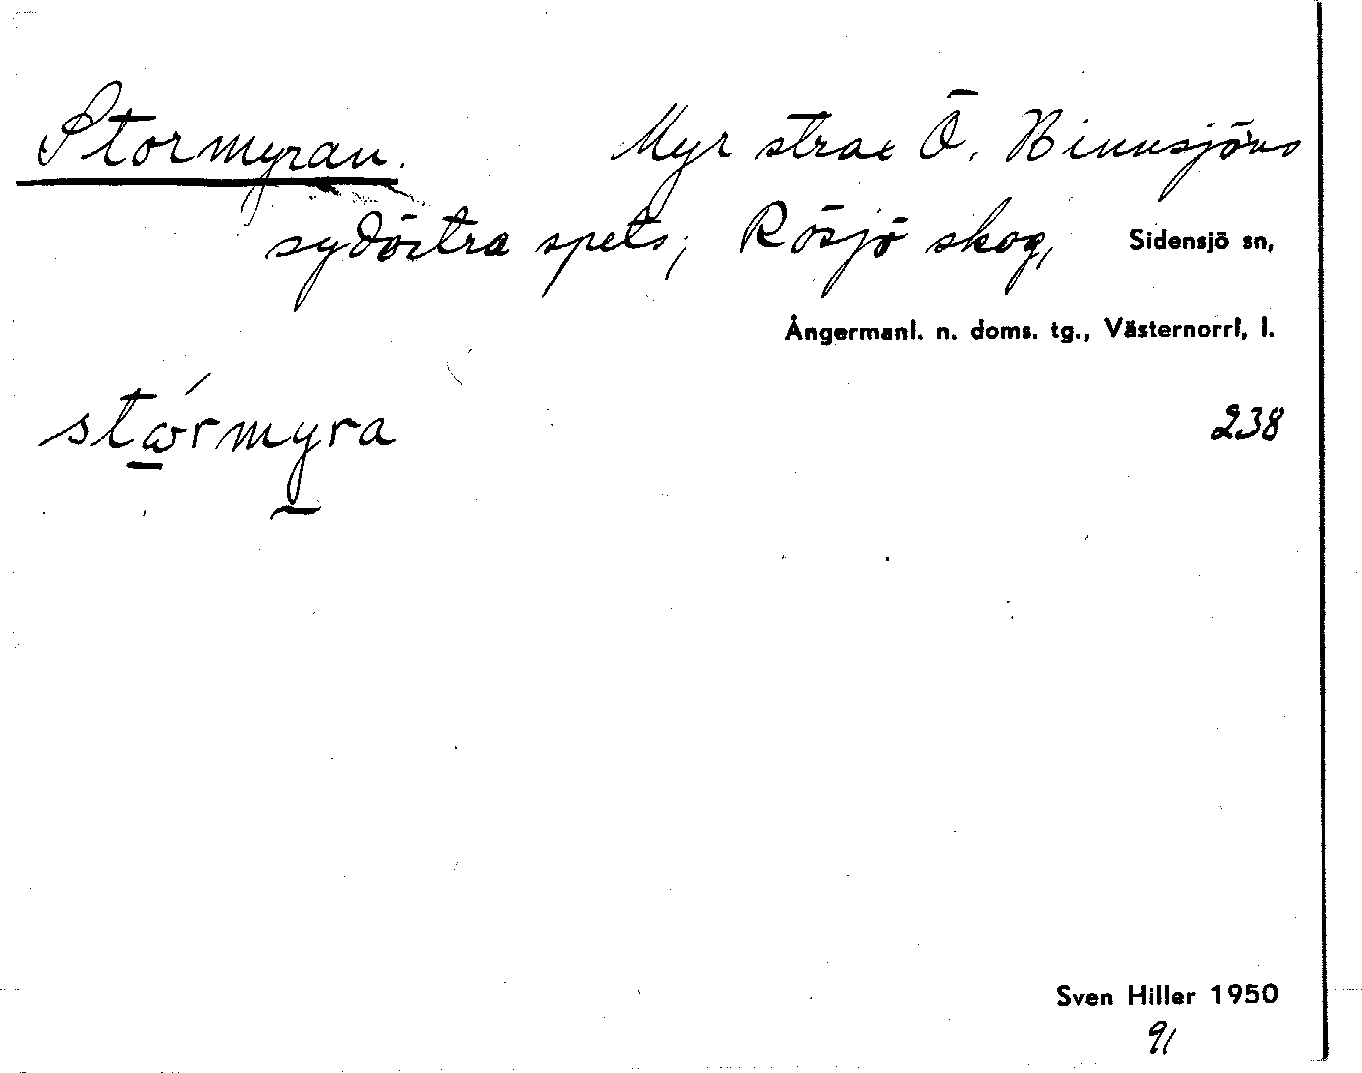 Stormyran. Myr strax Ö. Binnsjöns
sydöstra spets, Rösjö skog, Sidensjö sn,
Ångermanl. n. doms. tg., Västernorrl. l.
stώrmyra 238
Sven Hiller 1950
91